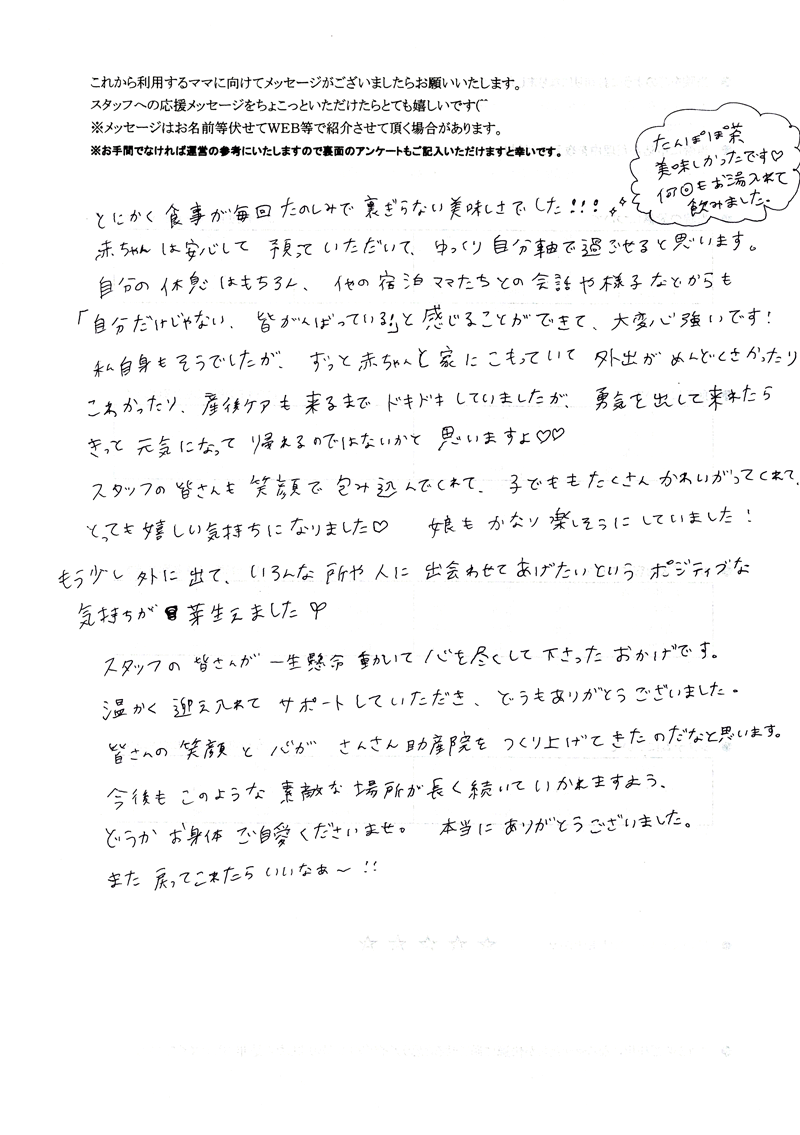 これから利用するママに向けてメッセージがございましたらお願いいたします。
スタッフへの応援メッセージをちょこっといただけたらとても嬉しいです(^^
※メッセージはお名前等伏せてWEB等で紹介させて頂く場合があります。
※お手間でなければ運営の参考にいたしますので裏面のアンケートもご記入いただけますと幸いです。
たんぽぽ茶
美味しかったです♡
何回もお湯入れて
飲みました。
とにかく食事が毎回たのしみで裏ぎらない美味しさでした!!!
赤ちゃんは安心して預っていただいて、ゆっくり自分軸で過ごせると思います。
自分の休息はもちろん、他の宿泊ママたちとの会話や様子などからも
「自分だけじゃない、皆がんばっている!」と感じることができて、大変心強いです!
私自身もそうでしたが、ずっと赤ちゃんと家にこもっていて外出がめんどくさかったり
こわかったり、産後ケアも来るまでドキドキしていましたが、勇気を出して来れたら
きっと元気になって帰えるのではないかと思いますよ♡♡
スタッフの皆さんも笑顔で包み込んでくれて、子どももたくさんかわいがってくれて、
とっても嬉しい気持ちになりました♡ 娘もかなり楽しそうにしていました!
もう少し外に出て、いろんな所や人に出会わせてあげたいというポジティブな
気持ちが芽生えました♡
スタッフの皆さんが一生懸命動いて心を尽くして下さったおかげです。
温かく迎え入れてサポートしていただき、どうもありがとうございました。
皆さんの笑顔と心がさんさん助産院をつくり上げてきたのだなと思います。
今後もこのような素敵な場所が長く続いていかれますよう、
どうかお身体ご自愛くださいませ。 本当にありがとうございました。
また戻ってこれたらいいなぁ〜!!